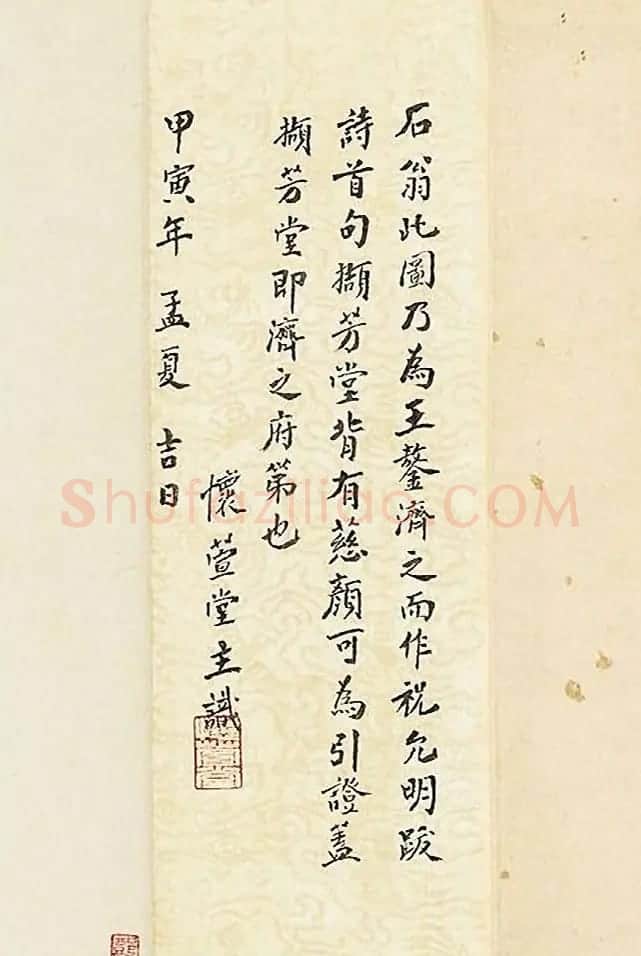 石翁此圖乃為王鏊濟之而作祝允明跋
詩首句擷芳堂背有慈顏可為引證蓋
擷芳堂即濟之府第也
懷萱堂主識
甲寅年 孟夏 吉日
Shufaziliao.COM